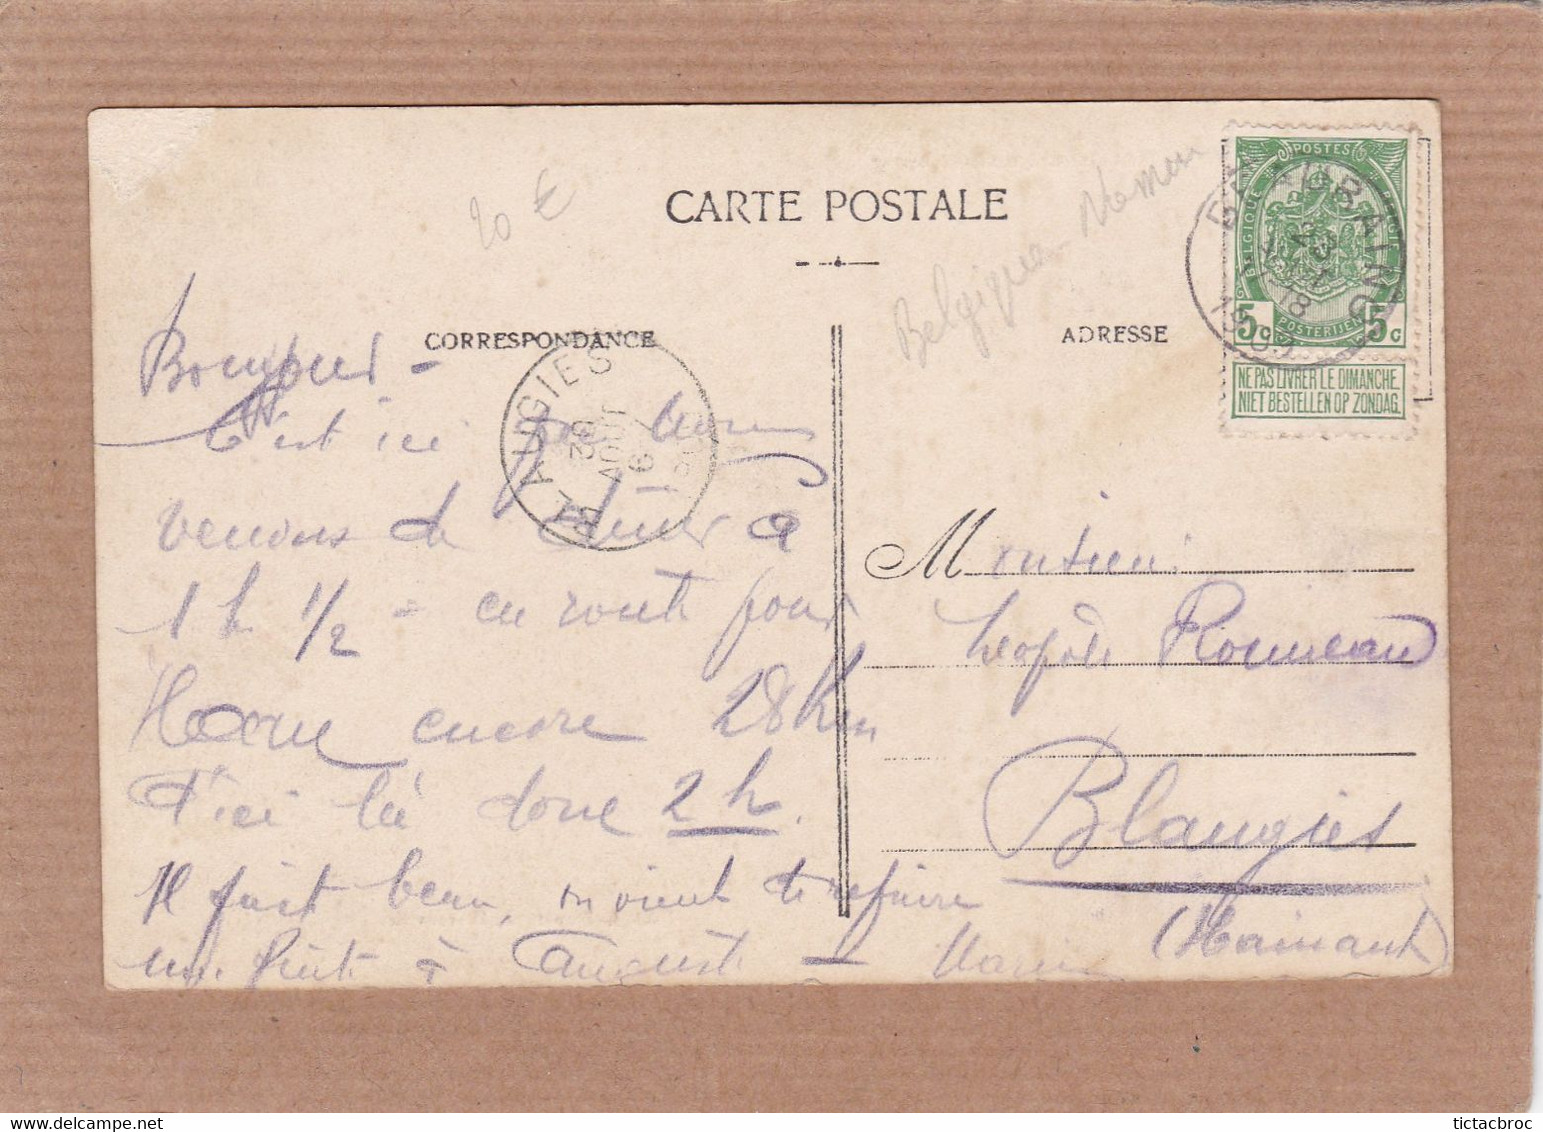 CARTE POSTALE
20 €
Belgique - Namur
CORRESPONDANCE
ADRESSE
POSTES
BELGIQUE BELGIË
POSTERIJEN
5c 5c
NE PAS LIVRER LE DIMANCHE.
NIET BESTELLEN OP ZONDAG.
BEAURAING
23
18
BLAUGIES
AOUT
Bonjour -
C'est ici que nous
venons de dîner à
1 h 1/2 - en route pour
encore 28 Km
d'ici là donc 2 h.
Il fait beau, on vient de refaire
une à Auguste -
Monsieur
Léopold Rouneau
Blaugies
(Hainaut)
tictacbroc